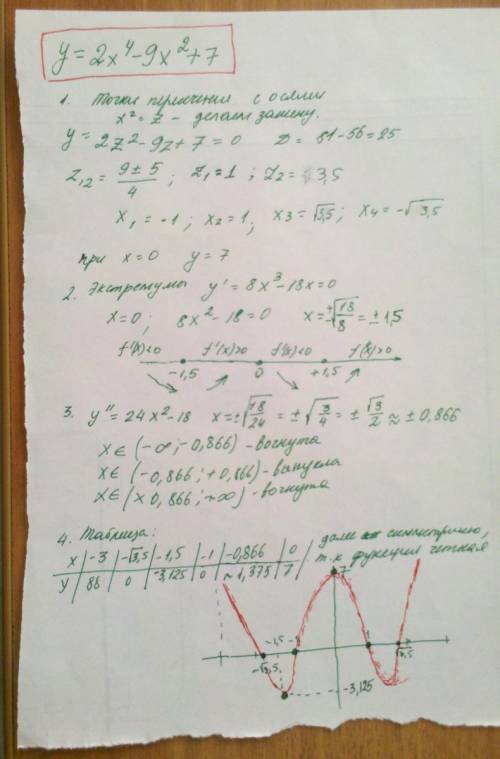 y = 2x⁴-9x²+7
1. Точки пересечения с осями
x² = z - делаем замену.
y = 2z²-9z+7=0 D = 81-56=25
z₁,₂ = (9±5)/4 ; z₁=1 ; z₂= 3,5
x₁ = -1 ; x₂=1 ; x₃=√3,5 ; x₄=-√3,5
при x=0 y=7
2. Экстремумы y' = 8x³-18x=0
x=0 ; 8x²-18=0 x=±√(18/8)=±1,5
f'(x)<0 f'(x)>0 f'(x)<0 f'(x)>0
-1,5 0 +1,5
3. y''=24x²-18 x=±√(18/24)=±√(3/4)=±√3/2≈±0,866
x∈(-∞;-0,866)-вогнута
x∈(-0,866;+0,866)-выпукла
x∈(+0,866;+∞)-вогнута
4. Таблица:
x | -3 | -√3,5 | -1,5 | -1 | -0,866 | 0
y | 88 | 0 | -3,125 | 0 | ≈1,375 | 7
далее симметрично,
т.к функция четная
7
-1,5 -1 1
-√3,5 √3,5
-3,125